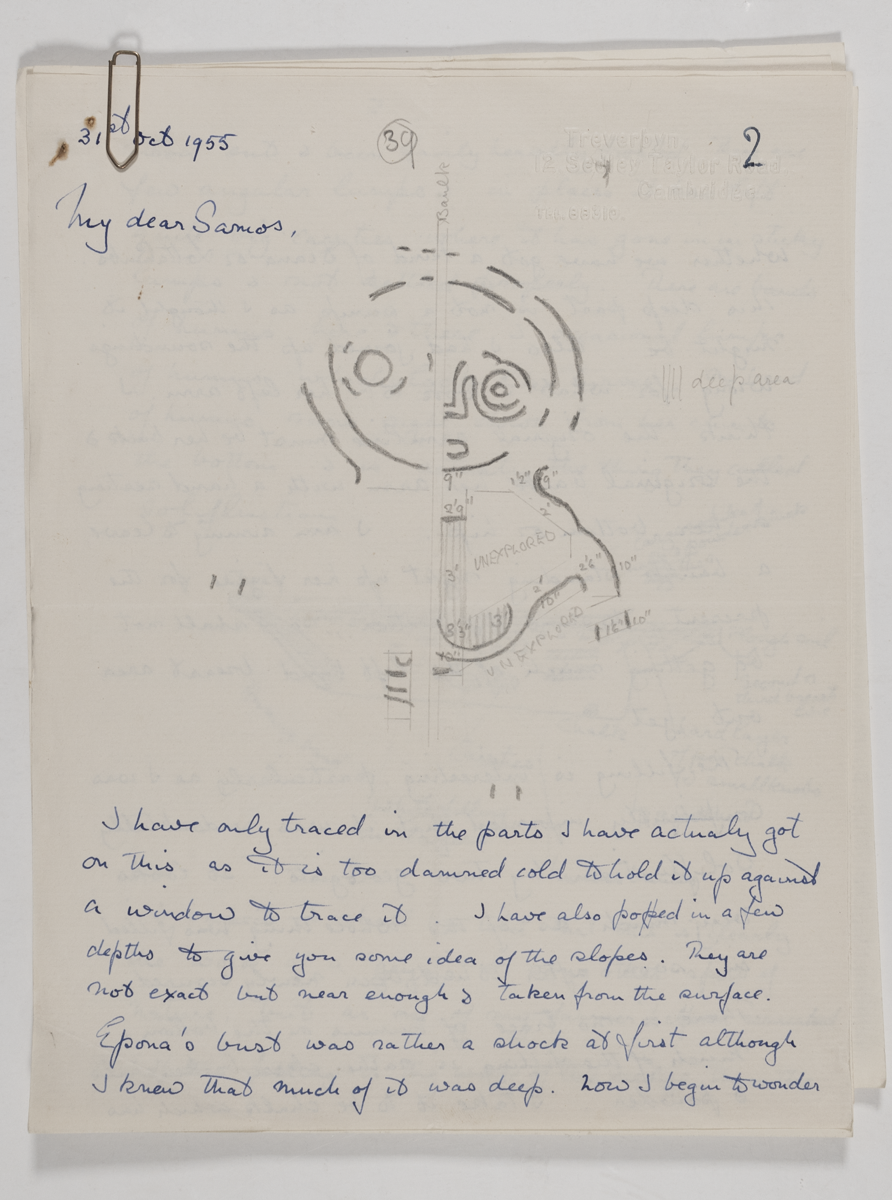 31st Oct 1955
39
2
Treverbyn,
12 Sedley Taylor Road
Cambridge
My dear Samos,
Baulk
deep area
9"
1½"
9"
2'9"
2'
UNEXPLORED
3"
2'6"
10"
2'
10"
3'3"
3'
UNEXPLORED
10"
I have only traced in the parts I have actualy got
on this as it is too damned cold to hold it up against
a window to trace it. I have also popped in a few
depths to give you some idea of the slopes. They are
not exact but near enough & taken from the surface.
Epona's bust was rather a shock at first although
I knew that much of it was deep. Now I begin to wonder